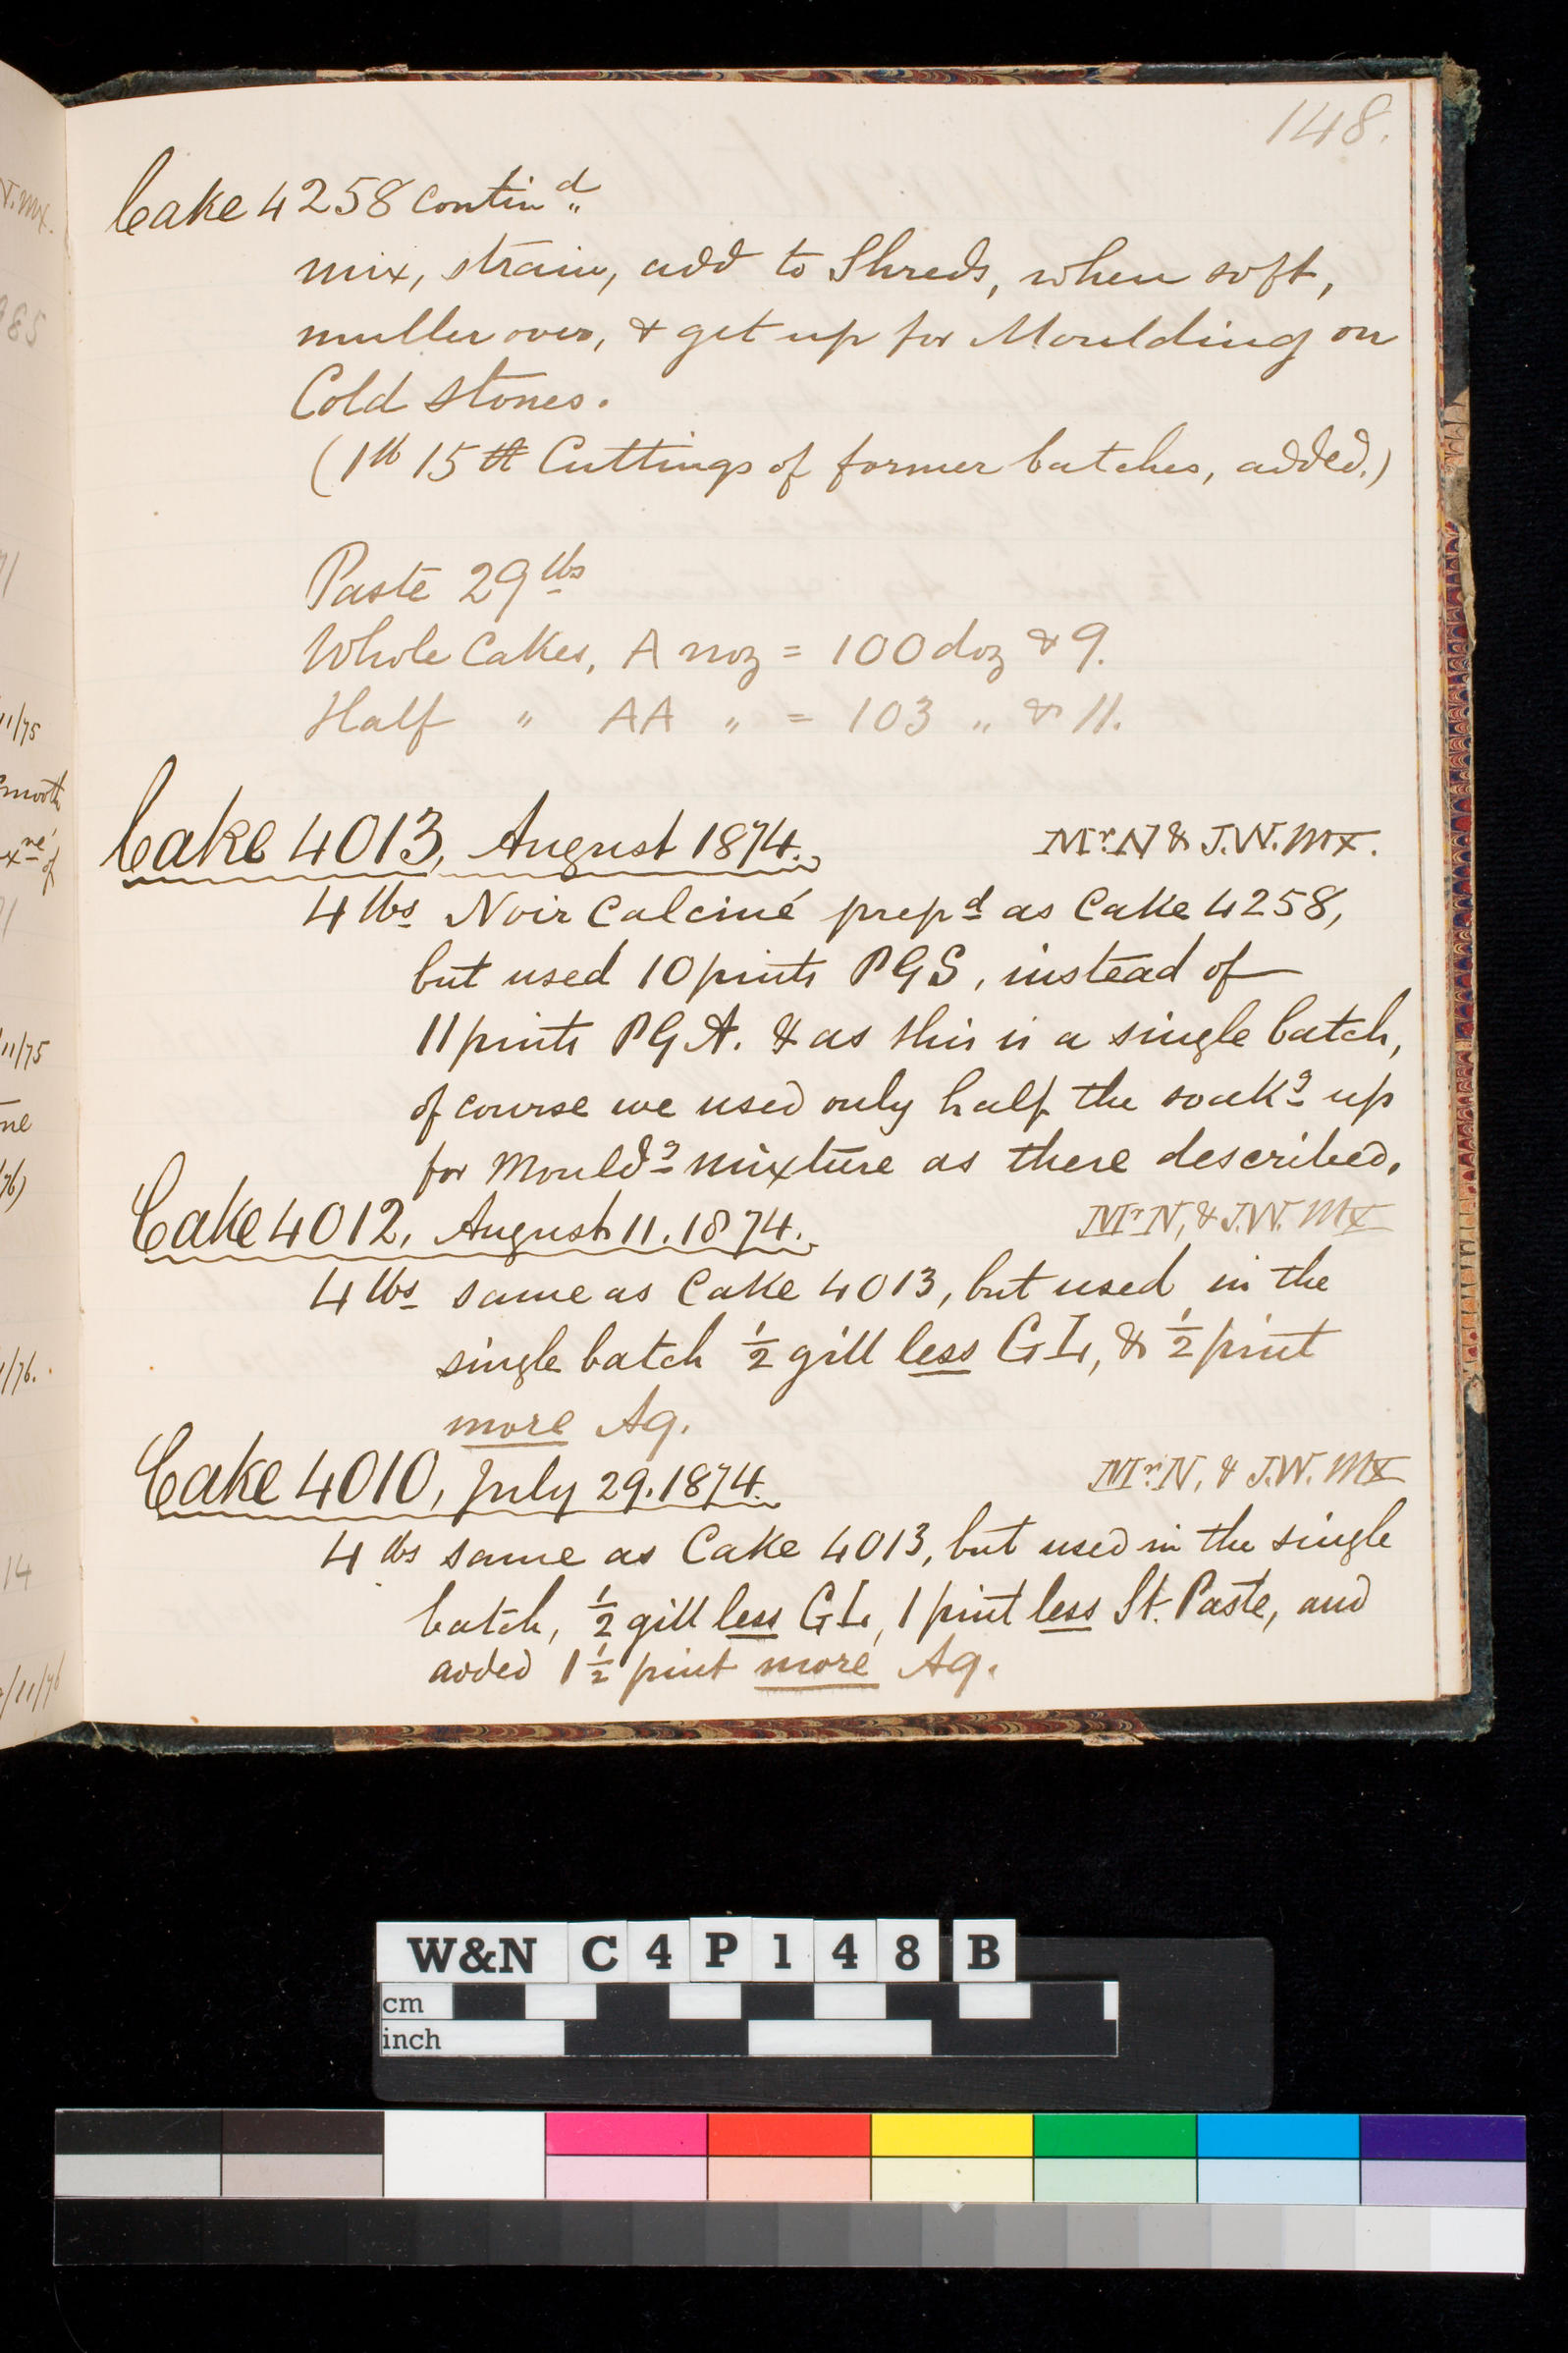 148.
Cake 4258 contin.d
mix, strain, add to Shreds, when soft,
muller over, & get up for Moulding on
Cold Stones.
(1 lb 15 Cuttings of former batches, added.)
Paste 29 lbs
Whole Cakes, A noz = 100 doz & 9.
Half " AA " = 103 " & 11.
Cake 4013, August 1874. Mr. N & J.W. Mx.
4 lbs Noir Calciné prepd as Cake 4258,
but used 10 pints PGS, instead of
11 pints PGA. & as this is a single batch,
of course we used only half the soakg up
for Mouldg mixture as there described.
Cake 4012, August 11. 1874. Mr N, & J.W. Mx
4 lbs same as Cake 4013, but used in the
single batch ½ gill less GL, & ½ pint
more Aq.
Cake 4010, July 29. 1874. Mr N, & J.W. Mx
4 lbs same as Cake 4013, but used in the single
batch, ½ gill less GL, 1 pint less St. Paste, and
added 1½ pint more Aq.
11/75
smooth
of
11/75
76)
/76.
14
/11/76
W&N C 4 P 1 4 8 B
cm
inch